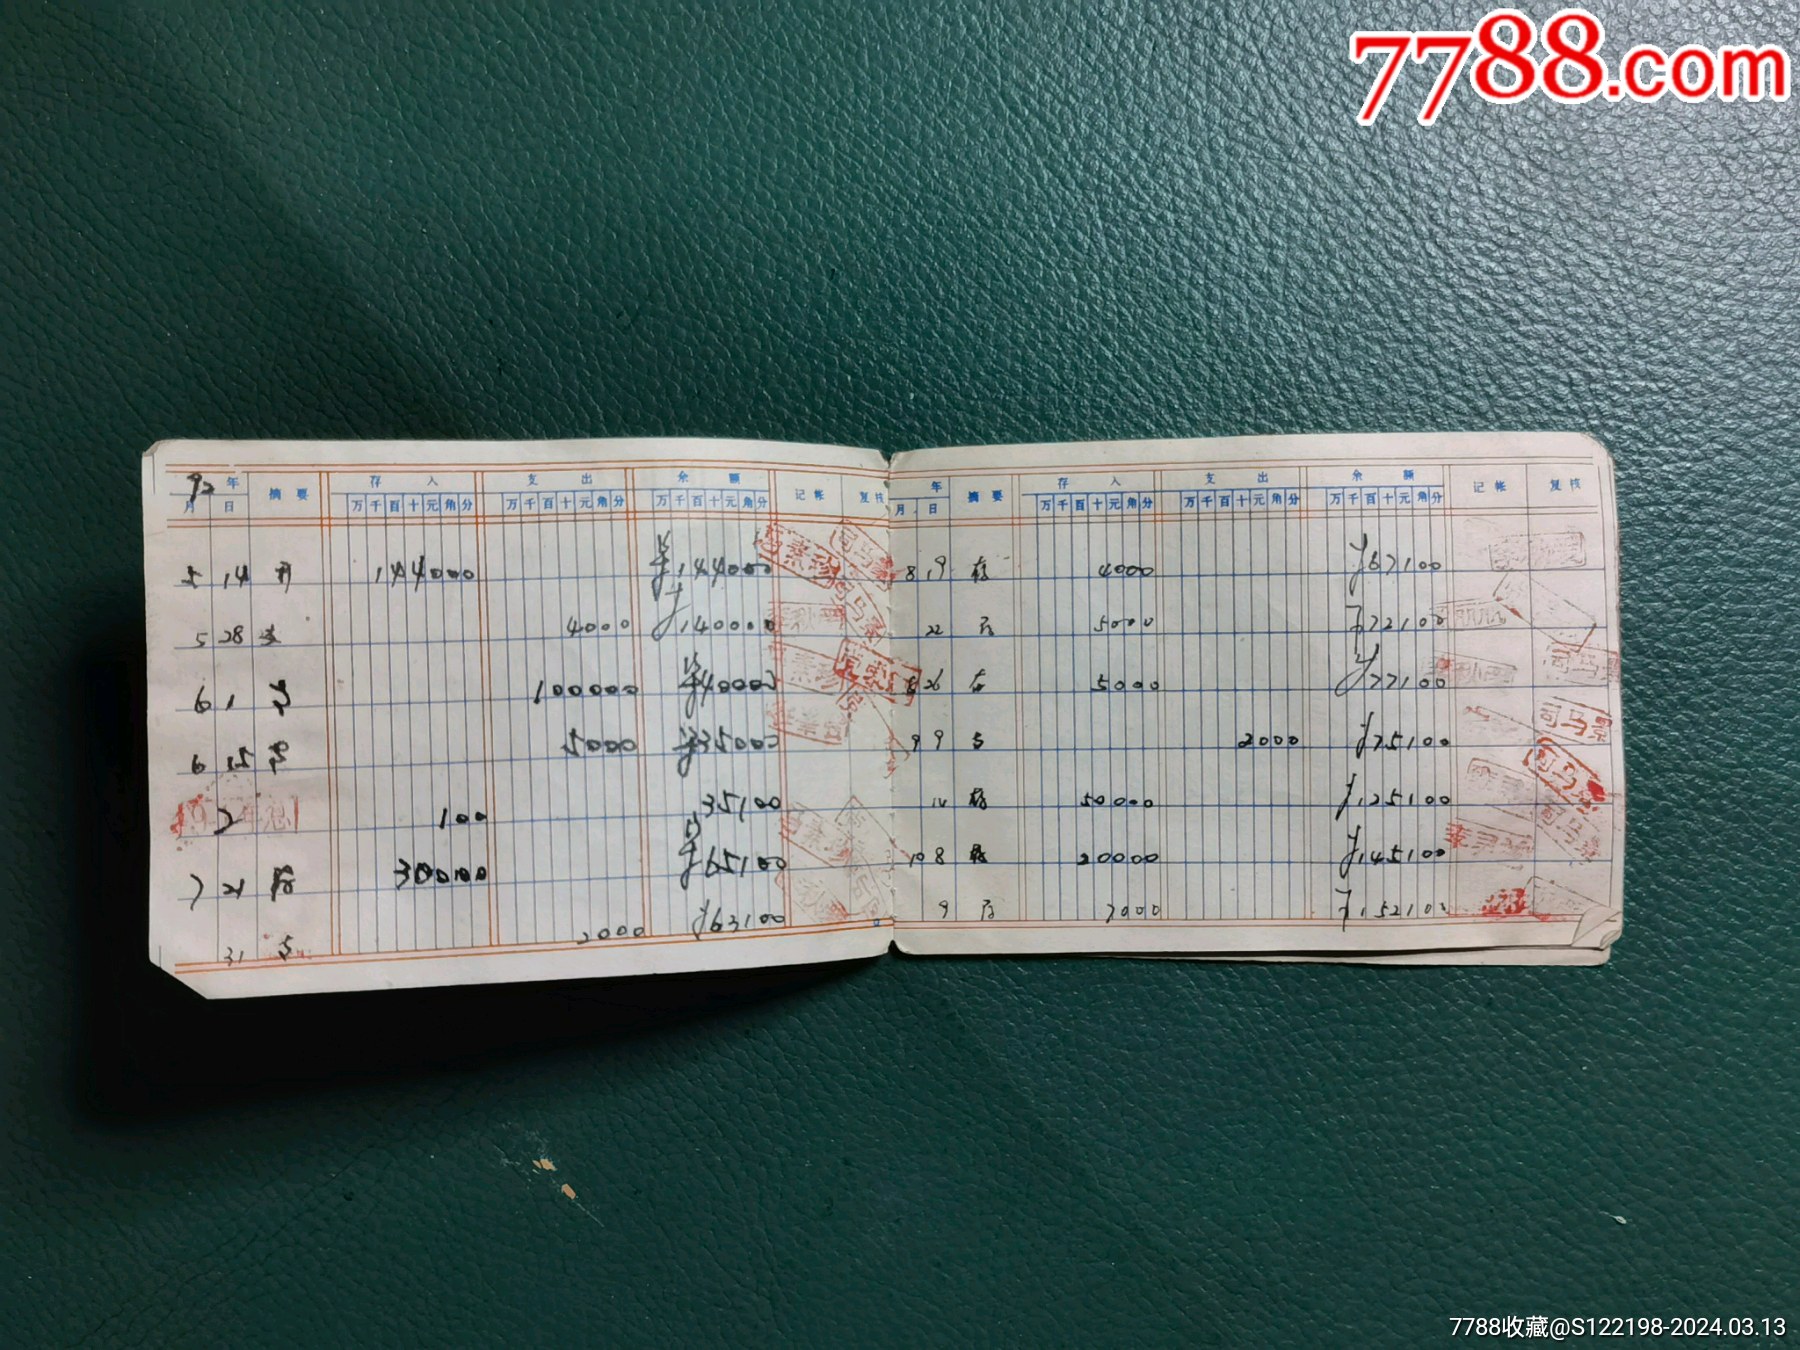 7788.com
92 年 摘要 存入 支出 余额 记帐 复核
月 日 万千百十元角分 万千百十元角分 万千百十元角分
5 14 开 144000 ¥144000
5 28 支 4000 ¥140000
6 1 支 100000 ¥40000
6 15 支 5000 ¥35000
100 35100
7 21 存 30000 ¥65100
31 支 2000 ¥63100
年 摘要 存入 支出 余额 记帐 复核
月 日 万千百十元角分 万千百十元角分 万千百十元角分
8 19 存 4000 ¥67100
22 存 5000 ¥72100
26 存 5000 ¥77100
9 9 支 2000 ¥75100
14 存 50000 ¥125100
10 8 存 20000 ¥145100
9 存 7000 ¥152100
7788收藏@S122198-2024.03.13